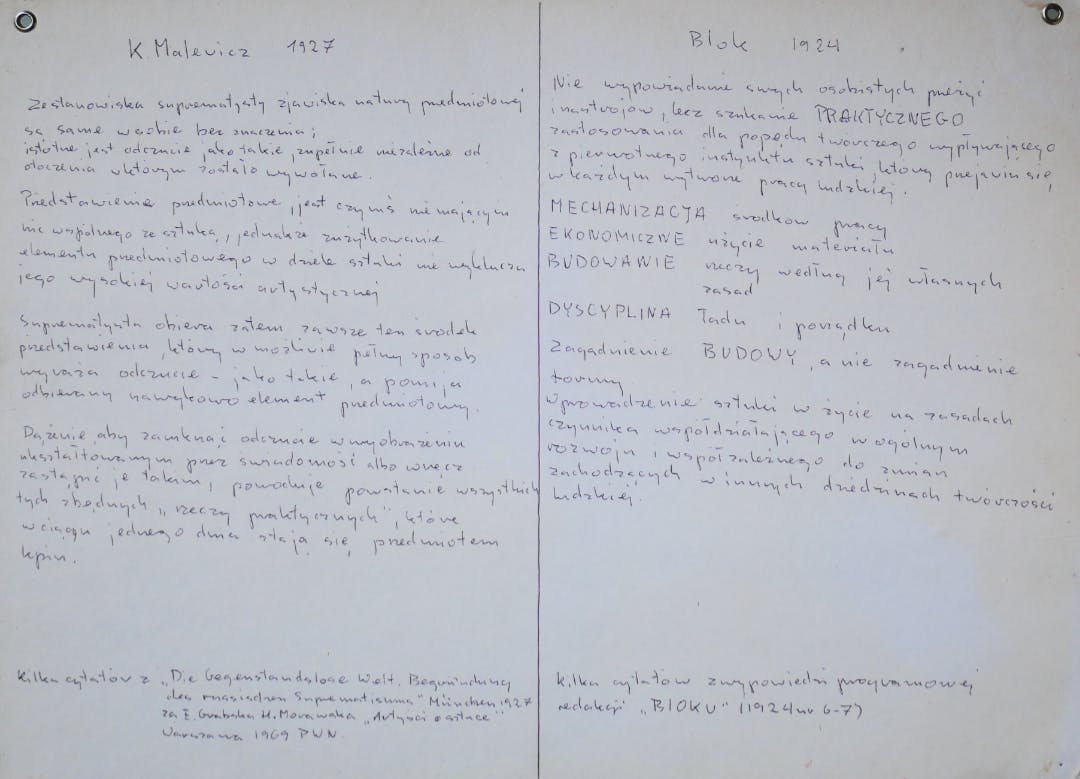 K. Malewicz 1927
Ze stanowiska suprematysty zjawiska natury przedmiotowej
są same w sobie bez znaczenia;
istotne jest odczucie jako takie, zupełnie niezależne od
otoczenia w którym zostało wywołane.
Przedstawienie przedmiotowe, jest czymś nie mającym
nic wspólnego ze sztuką, jednakże zużytkowanie
elementu przedmiotowego w dziele sztuki nie wyklucza
jego wysokiej wartości artystycznej
Suprematysta obiera zatem zawsze ten środek
przedstawienia, który w możliwie pełny sposób
wyraża odczucie - jako takie, a pomija
odbierany nawykowo element przedmiotowy.
Dążenie, aby zamknąć odczucie w wyobrażeniu
ukształtowanym przez świadomość albo wręcz
zastąpić je takim, powoduje powstanie wszystkich
tych zbędnych „rzeczy praktycznych", które
w ciągu jednego dnia stają się przedmiotem
kpin.
Kilka cytatów z „Die Gegenstandslose Welt. Begründung
des russischen Suprematismus" München 1927
za E. Grabska H. Morawska „Artyści o sztuce"
Warszawa 1969 PWN.
Blok 1924
Nie wypowiadanie swych osobistych przeżyć
i nastrojów, lecz szukanie PRAKTYCZNEGO
zastosowania dla popędu twórczego wypływającego
z pierwotnego instynktu sztuki, który przejawia się,
w każdym wytworze pracy ludzkiej.
MECHANIZACJA środków pracy
EKONOMICZNE użycie materiału
BUDOWANIE rzeczy według jej własnych
zasad
DYSCYPLINA ładu i porządku
Zagadnienie BUDOWY, a nie zagadnienie
formy.
Wprowadzenie sztuki w życie na zasadach
czynnika współdziałającego w ogólnym
rozwoju i współzależnego do zmian
zachodzących w innych dziedzinach twórczości
ludzkiej.
kilka cytatów z wypowiedzi programowej
redakcji „BLOKU" (1924 nr 6-7)